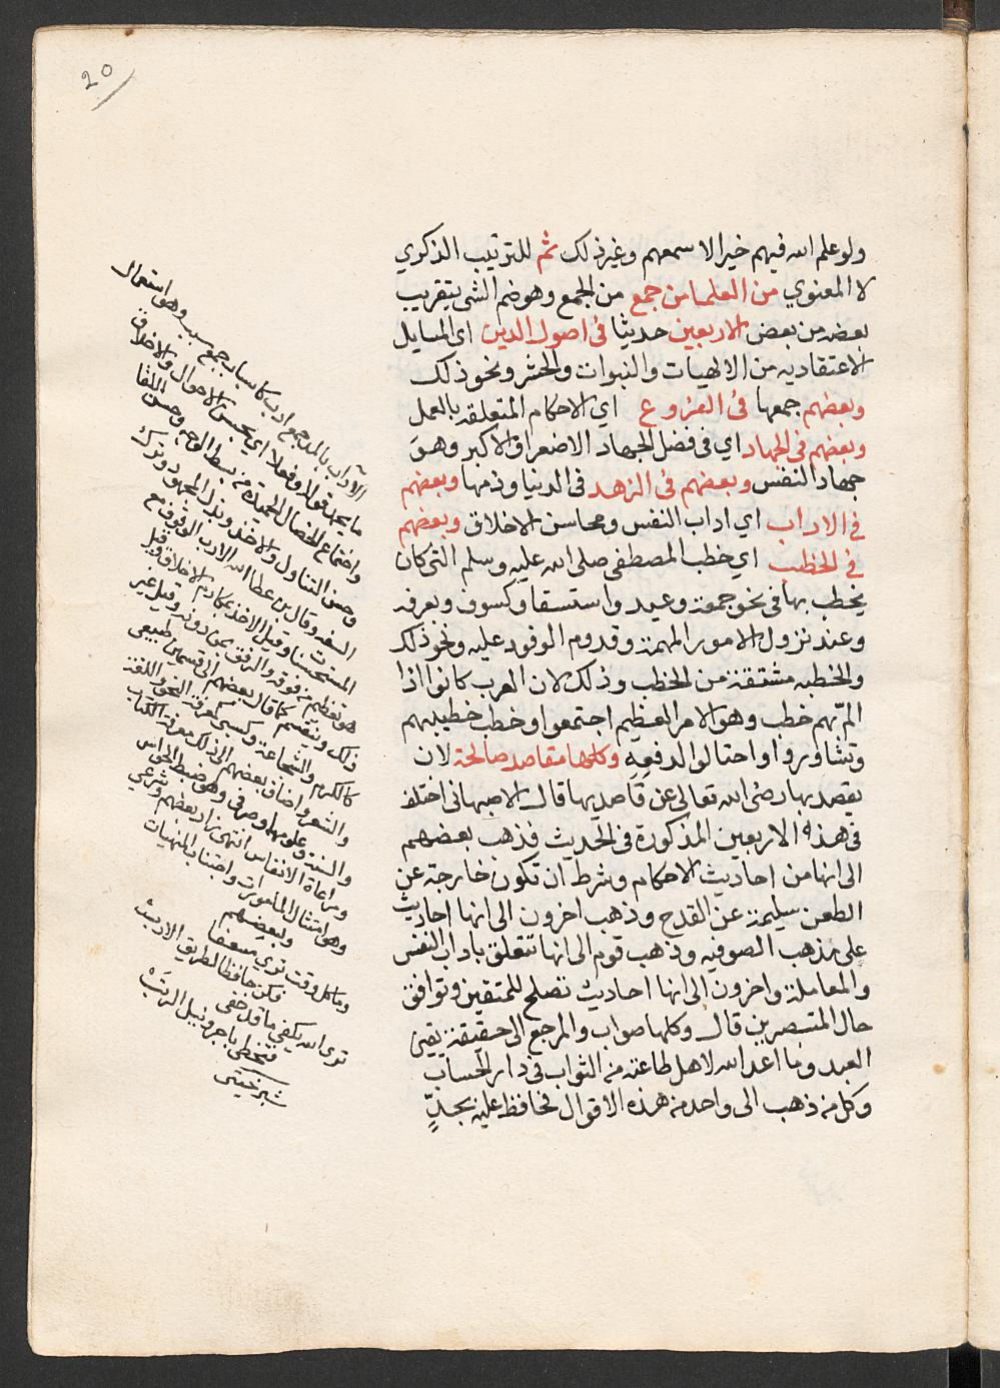 20
ولو علم الله فيهم خيرا لاسمعهم وغير ذلك ثم للترتيب الذكري
لا المعنوي من العلما من جمع من الجمع وهو ضم الشي بتقريب
بعضه من بعض الاربعين حديثا في اصول الدين اي المسايل
الاعتقاديه من الالهيات والنبوات والحشر ونحو ذلك
وبعضهم جمعها في الفروع اي الاحكام المتعلقه بالعمل
وبعضهم في الجهاد اي في فضل الجهاد الاصغر او الاكبر وهو
جهاد النفس وبعضهم في الزهد في الدنيا وذمها وبعضهم
في الاداب اي اداب النفس ومحاسن الاخلاق وبعضهم
في الخطب اي خطب المصطفي صلى الله عليه وسلم التي كان
يخطب بها في نحو جمعة وعيد واستسقا وكسوف وبعرفه
وعند نزول الامور المهمة وقدوم الوفود عليه ونحو ذلك
والخطبه مشتقة من الخطب وذلك لان العرب كانوا اذا
الم بهم خطب وهو الامر العظيم اجتمعوا وخطب خطيبهم
وتشاوروا واحتالوا لدفعه وكلها مقاصد صالحة لان
يقصد بها رضي الله تعالى عن قاصديها قال الاصبهاني اختلف
في هذه الاربعين المذكورة في الحديث فذهب بعضهم
الى انها من احاديث الاحكام وشرط ان تكون خارجة عن
الطعن سليمة عن القدح وذهب اخرون الى انها احاديث
على مذهب الصوفيه وذهب قوم الى انها تتعلق باداب النفس
والمعاملة واخرون الى انها احاديث تصلح للمتقين وتوافق
حال المتبصرين قال وكلها صواب والمرجع الى حقيقة يقين
العبد وما اعد الله لاهل طاعته من الثواب في دار الحساب
وكل من ذهب الى واحد من هذه الاقوال فحافظ عليه بجد
الآداب بالمد جمع ادب كاسباب جمع سبب وهو استعمال
ما يحمد قولا وفعلا اي تحسين الاحوال والاخلاق
واجتماع الخصال الحميدة من بسط الوجه وحسن اللقا
وحسن التناول والاخذ وبذل المجهود وترك
السفه وقال بن عطا الله الادب الوقوف مع
المستحسنات وقيل الاخذ بمكارم الاخلاق وقيل
هو تعظيم من فوقه والرفق بمن دونه وقيل غير
ذلك وينقسم كما قال بعضهم الى قسمين طبيعي
كالكرم والشجاعة وكسبي كمعرفة النحو واللغة
والشعر واضاف بعضهم الى ذلك معرفة الكتاب
والسنة وعلومها وصرفي وهو ضبط الحواس
ومراعاة الانفاس انتهى زاد بعضهم وشرعي
وهو امتثال المامورات واجتناب المنهيات
ولبعضهم
وما كل وقت ترى مسعفا
فكن حافظا لطريق الادب
ترى الله يكفي ما قد خفى
فتحظى باجر ونيل الرتب
شبرخيتي